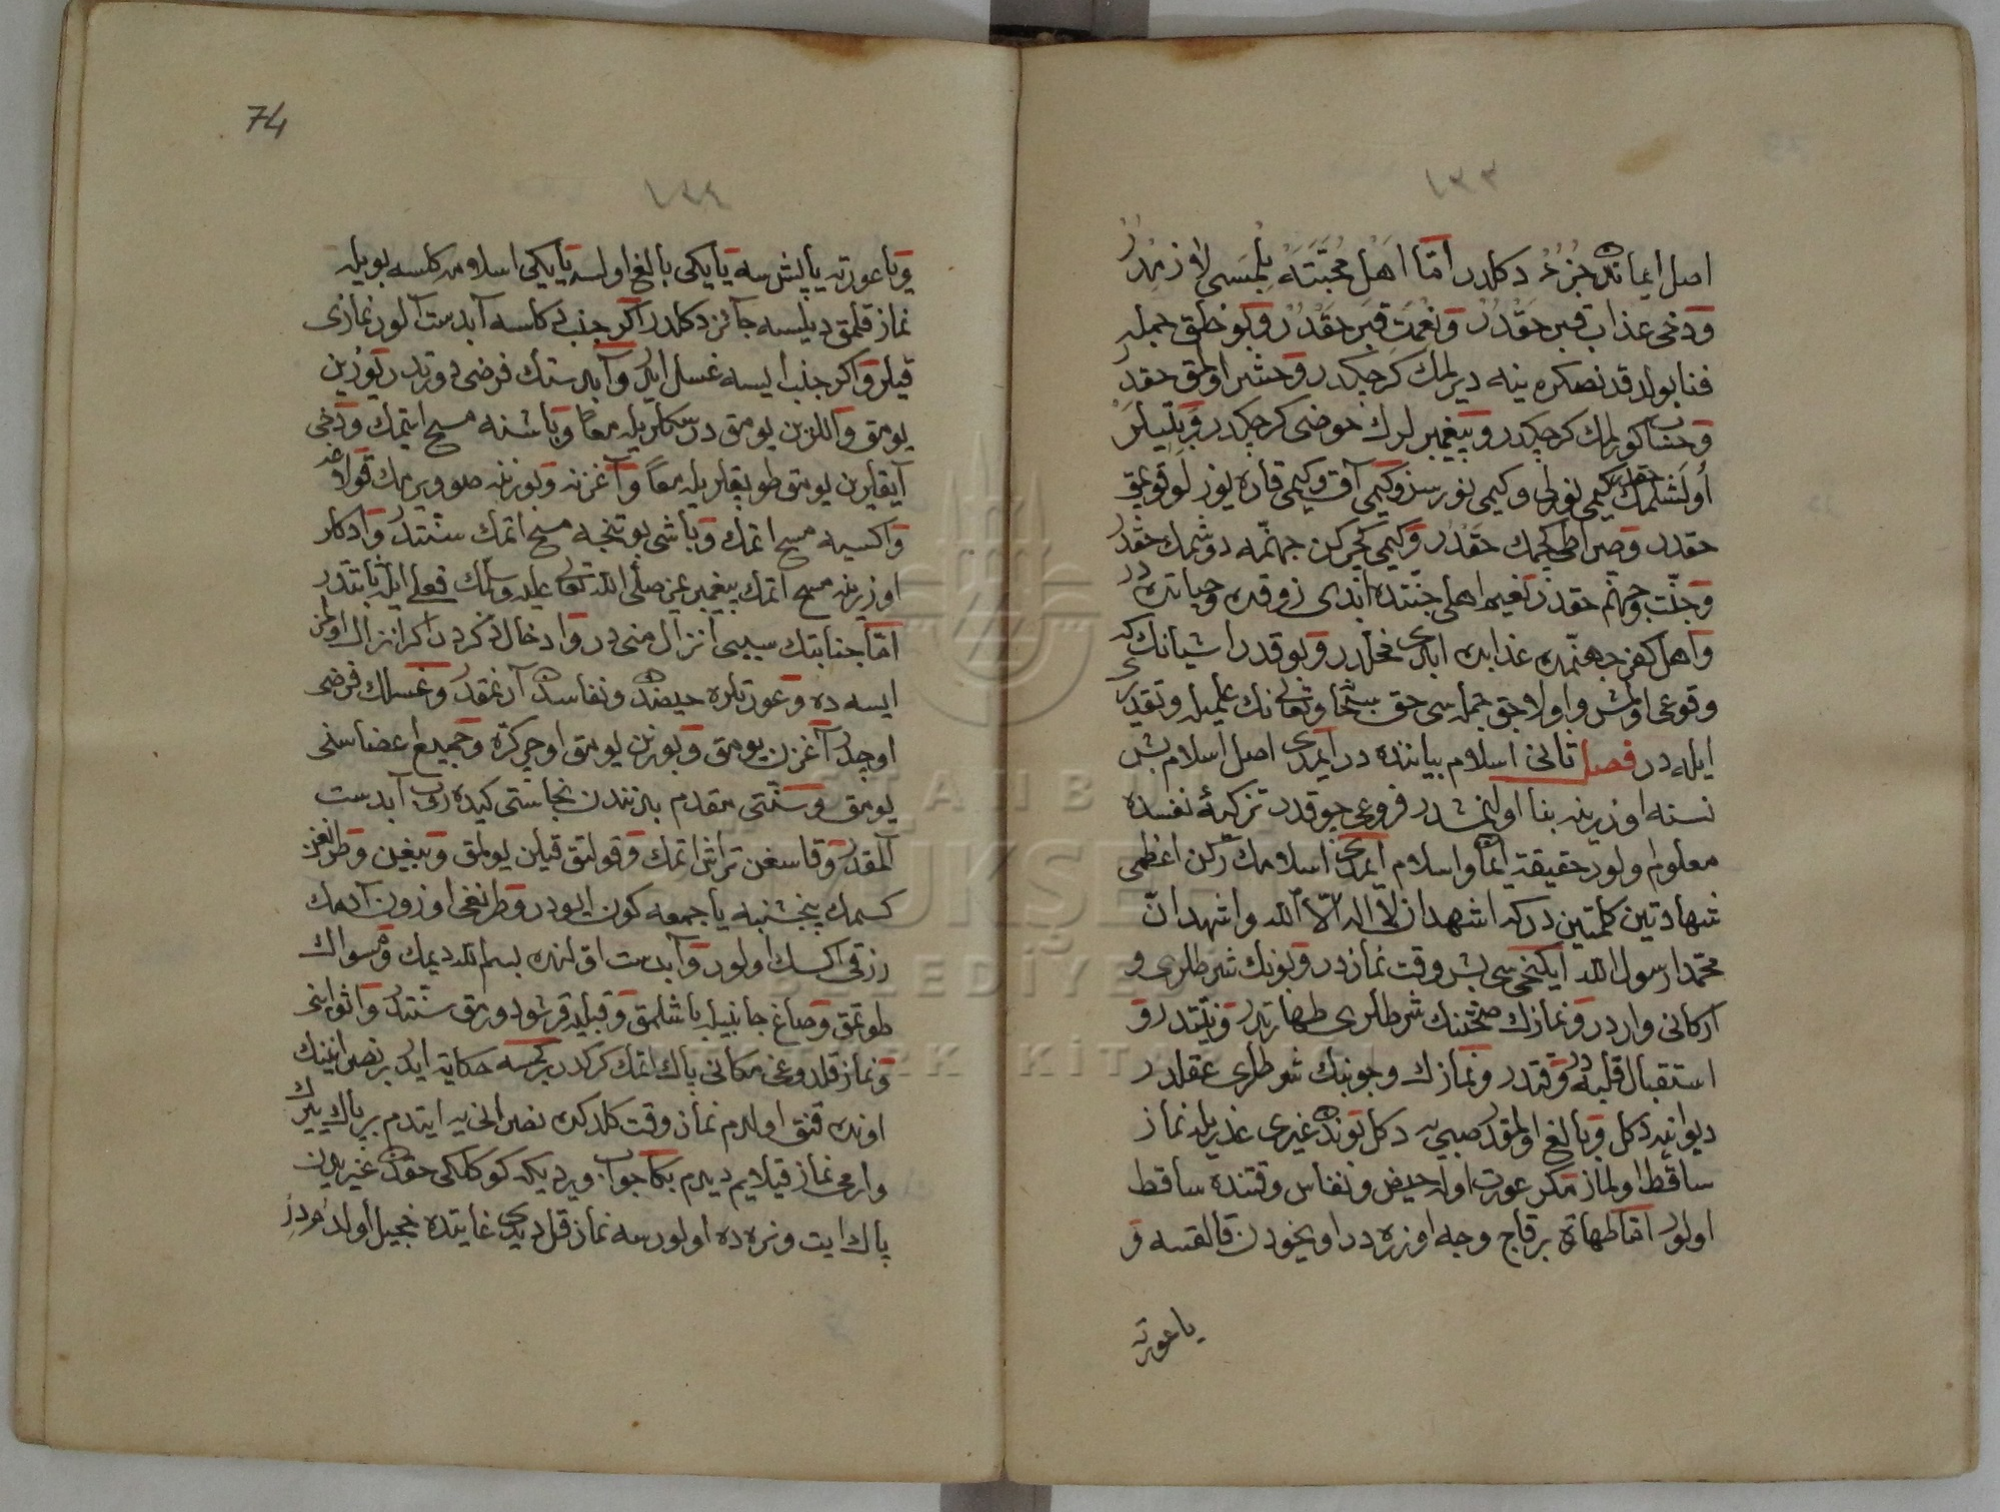 اصل ايماندن جزء دكلدر امّا اهل محبّته بلمسى لازمدر
ودخى عذاب قبر حقدر ونعمت قبر حقدر وبو خلق جمله
فنا بولدقدنصكره ينه ديرلمك كرچكدر وحشر اولمق حقدر
وحساب كورلمك كرچكدر وپيغمبرلرك حوضى كرچكدر
اولشلمك حقدر كيمى نورلى وكيمى نورسز وكيمى آق وكيمى قاره يوزلو قوپمق
حقدر وصراطى كچمك حقدر وكيمى كچركن جهنّمه دوشمك حقدر
وجنّت وجهنّم حقدر نعيم اهلى جنّتده ابدى ذوقده وحياتده در
واهل كفر جهنّمده عذابده ابدى مخلّدر وبو قدر اشيانك كه
وقوعى اولمش واولاجق جمله سى حق سبحانه وتعالى نك علميله وتقديرى
ايله در فصل ثانى اسلام بياننده در ايمدى اصل اسلام بش
نسنه اوزرينه بنا اولنمشدر فروعى چوقدر تزكيۀ نفسده
معلوم اولور حقيقة ايمان واسلام ايمدى اسلامك ركن اعظمى
شهادتين كلمتين در كه اشهد ان لا اله الّا الله واشهد انّ
محمّدا رسول الله ايكنجى سى بش وقت نمازدر وبونك شرطلرى و
اركانى واردر ونمازك صحّتنك شرطلرى طهارتدر ونيّتدر و
استقبال قبله در وقتدر ونمازك وجوبنك شرطلرى عقلدر
ديوانه يه دكل وبالغ اولمقدر صبى يه دكل بوندن غيرى عذريله نماز
ساقط اولماز مكر عورت اوله حيض ونفاس وقتنده ساقط
اولور امّا طهارة برقاچ وجه اوزره در اويخودن قالقسه و
يا عورته
74
ويا عورته ياپشسه يا يكى بالغ اولسه يا يكى اسلامه كلسه بويله
نماز قلمق ديلسه جائز دكلدر اكر جنب دكلسه آبدست آلور نمازى
قيلر واكر جنب ايسه غسل ايلر وآبدستك فرضى دورتدر يوزين
يومق واللرين يومق درسكلريله معًا وباشنه مسح ايتمك ودخى
آيقلرين يومق طوپقلريله معًا وآغزنه وبورننه صو ويرمك
واكسيه مسح اتمك وباشى بوتنجه مسح اتمك سنّتدر
اوزرينه مسح اتمك پيغمبرمز صلّى الله تعالى عليه وسلّمك فعلى ايله ثابتدر
امّا جنابتك سببى انزال منى در وادخال ذكردر اكر انزال اولمز
ايسه ده وعورتلره حيضدن ونفاسدن آرنمقدر وغسلك فرضى
اوچدر آغزن يومق وبورنن يومق اوچر كره وجميع اعضاسنى
يومق وسنّتى مقدم بدنندن نجاستى كيدروب آبدست
آلمقدر وقاسغن تراش اتمك وقولتق قيلن يولمق وبيغين وطرنغن
كسمك پنجشنبه يا جمعه كون ايودر وطرنغى اوزون آدمك
رزقى اكسك اولور وآبدست آلنده بسم الله ديمك ومسواك
طوتمق وصاغ جانبيله باشلمق وقبليه قرشو دورمق سنّتدر واثوابنى
ونماز قلدوغى مكانى پاك اتمك كركدر بركمسه حكايه ايدر بر نصرانينك
اونده قنق اولدم نماز وقت كلدكده نصرانى يه ايتدم بر پاك يرك
وارمى نماز قيلايم ديدم بكا جواب ويردى كه كوكلكى حقدن غيريدن
پاك ايت ونره ده اولورسه نماز قل ديدى غايتده خجيل اولدم